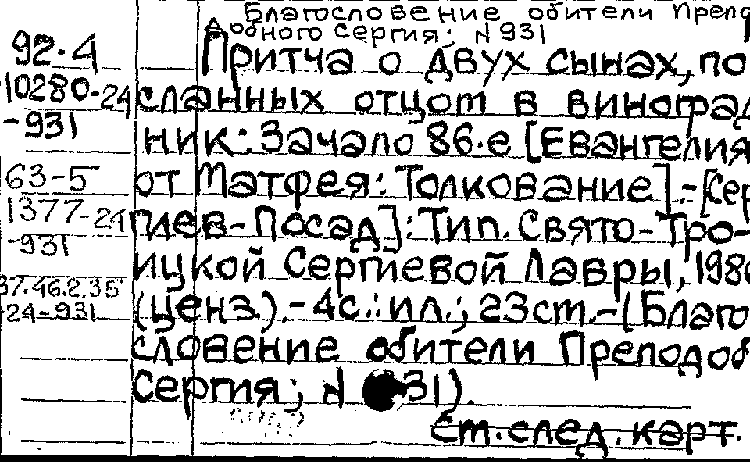 Благословение обители Препо
добного Сергия; N 931
92.4 Притча о двух сынах, по
10280-24 сланных отцом в виноград
-931 ник: Зачало 86-е [Евангелия
63-5 от Матфея: Толкование].-[Сер
1377-24 гиев-Посад]: Тип. Свято-Тро-
-931 ицкой Сергиевой Лавры, 198
37.46.2.35 (ценз.).-4с.:ил.; 23см.-(Благо
24-931 словение обители Преподоб
Сергия; N 31).
См.след.карт.